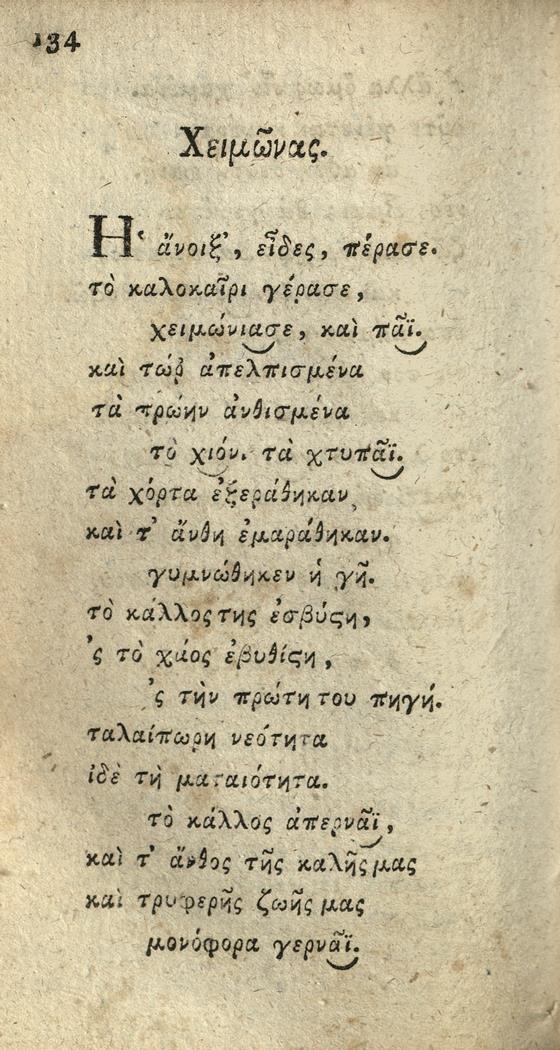 134
Χειμῶνας.
Ἡ ἄνοιξ', εἶδες, πέρασε.
τὸ καλοκαῖρι γέρασε,
χειμώνιασε, καὶ πᾶϊ.
καὶ τώρ ἀπελπισμένα
τὰ πρώην ἀνθισμένα
τὸ χιόν. τὰ χτυπᾶϊ.
τὰ χόρτα ἐξεράθηκαν,
καὶ τ' ἄνθη ἐμαράθηκαν.
γυμνώθηκεν ἡ γῆ.
τὸ κάλλος της ἐσβύϛη,
'ς τὸ χάος ἐβυθίϛη,
'ς τὴν πρώτη του πηγή.
ταλαίπωρη νεότητα
ἰδὲ τὴ ματαιότητα.
τὸ κάλλος ἀπερνᾶϊ,
καὶ τ' ἄνθος τῆς καλῆς μας
καὶ τρυφερῆς ζωῆς μας
μονόφορα γερνᾶϊ.